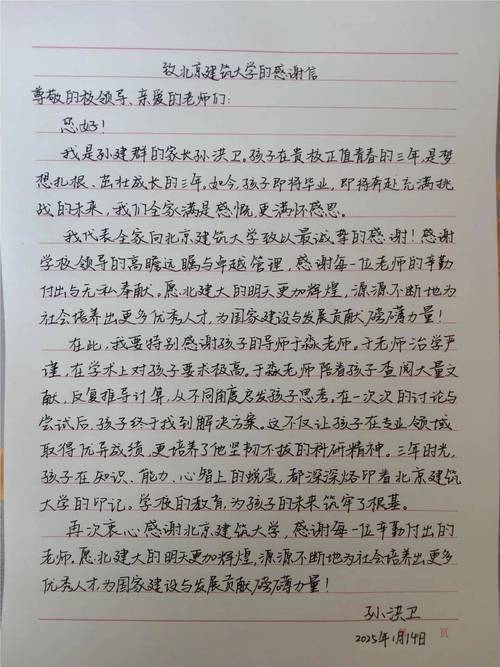 致北京建筑大学的感谢信
尊敬的校领导、亲爱的老师们:
您好!
我是孙建群的家长孙洪卫。孩子在贵校正值青春的三年,是梦
想扎根、茁壮成长的三年。如今,孩子即将毕业,即将奔赴充满挑
战的未来,我们全家满是感慨,更满怀感恩。
我代表全家向北京建筑大学致以最诚挚的感谢!感谢
学校领导的高瞻远瞩与卓越管理,感谢每一位老师的辛勤
付出与无私奉献。愿北建大的明天更加辉煌,源源不断地为
社会培养出更多优秀人才,为国家建设与发展贡献磅礴力量!
在此,我要特别感谢孩子的导师于淼老师。于老师治学严
谨,在学术上对孩子要求极高。于淼老师陪着孩子查阅大量文
献,反复推导计算,从不同角度启发孩子思考。在一次次的讨论与
尝试后,孩子终于找到解决方案。这不仅让孩子在专业领域
取得优异成绩,更培养了他坚韧不拔的科研精神。三年时光,
孩子在知识、能力、心智上的蜕变,都深深烙印着北京建筑
大学的印记。学校的教育,为孩子的未来筑牢了根基。
再次衷心感谢北京建筑大学,感谢每一位辛勤付出的
老师。愿北建大的明天更加辉煌,源源不断地为社会培养出更多
优秀人才,为国家建设与发展贡献磅礴力量!
孙洪卫
2025年1月14日
页